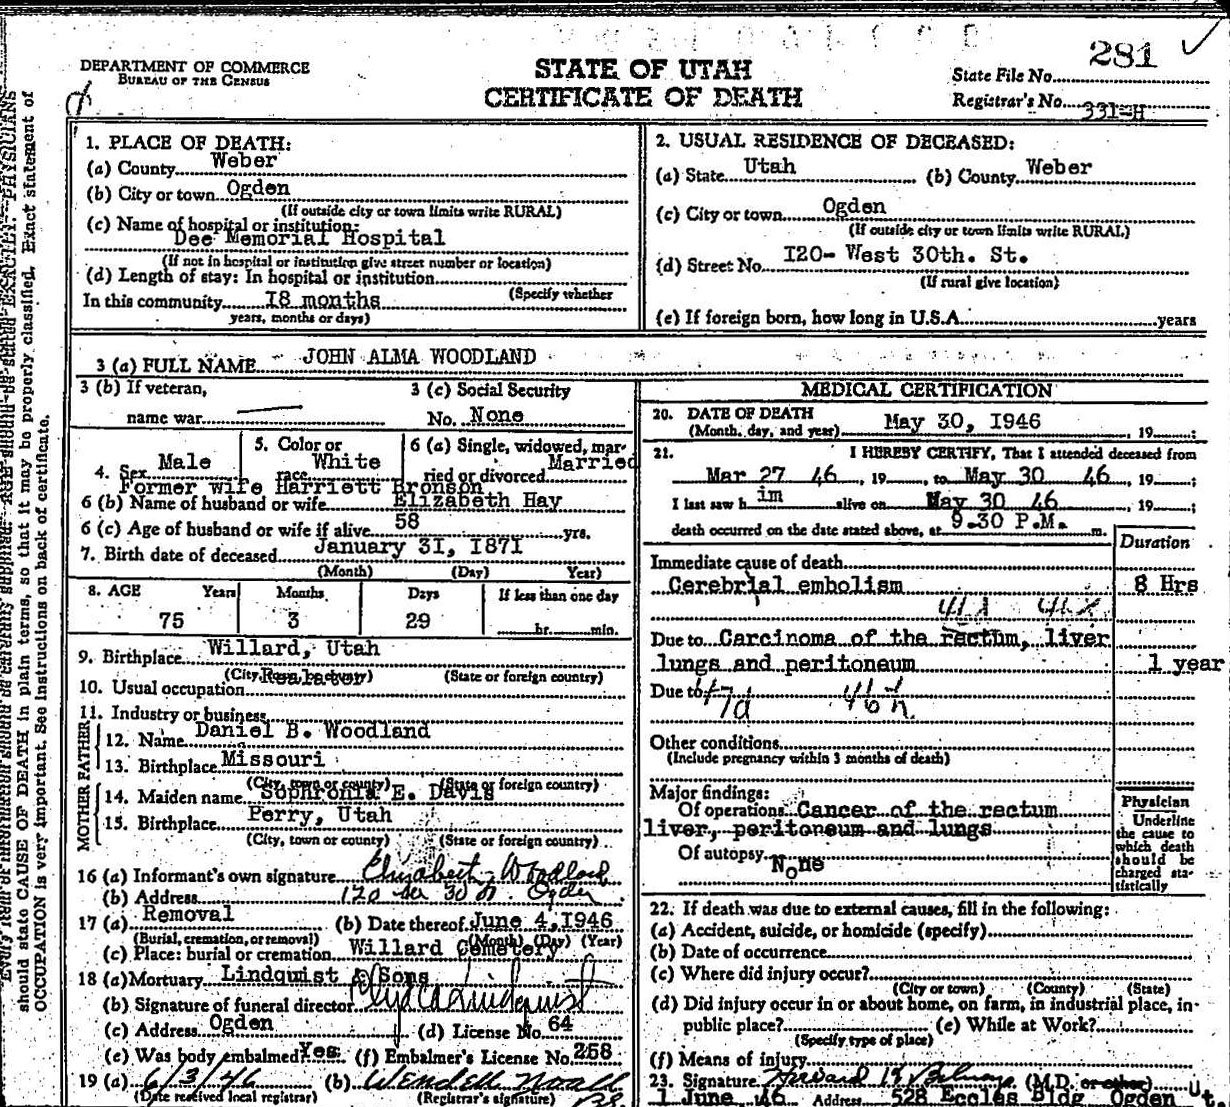 281
DEPARTMENT OF COMMERCE
BUREAU OF THE CENSUS
STATE OF UTAH
CERTIFICATE OF DEATH
State File No.
Registrar's No. 331-H
1. PLACE OF DEATH:
(a) County Weber
(b) City or town Ogden
(If outside city or town limits write RURAL)
(c) Name of hospital or institution:
Dee Memorial Hospital
(If not in hospital or institution give street number or location)
(d) Length of stay: In hospital or institution
(Specify whether
In this community I8 months
years, months or days)
2. USUAL RESIDENCE OF DECEASED:
(a) State Utah (b) County Weber
(c) City or town Ogden
(If outside city or town limits write RURAL)
(d) Street No. I20- West 30th. St.
(If rural give location)
(e) If foreign born, how long in U.S.A. years
3 (a) FULL NAME JOHN ALMA WOODLAND
3 (b) If veteran,
name war
3 (c) Social Security
No. None
4. Sex Male
5. Color or
race White
6 (a) Single, widowed, mar-
ried or divorced Married
Former wife Harriett Bronson
6 (b) Name of husband or wife Elizabeth Hay
6 (c) Age of husband or wife if alive 58 yrs.
7. Birth date of deceased January 3I, I87I
(Month) (Day) Year)
8. AGE Years Months Days If less than one day
75 3 29 hr. min.
9. Birthplace Willard, Utah
(City, town, or county) (State or foreign country)
10. Usual occupation Realator
11. Industry or business
FATHER
12. Name Daniel B. Woodland
13. Birthplace Missouri
(City, town or county) (State or foreign country)
MOTHER
14. Maiden name Sophronia E. Davis
15. Birthplace Perry, Utah
(City, town or county) (State or foreign country)
16 (a) Informant's own signature Elizabeth Woodland
(b) Address 120 30 Ogden
17 (a) Removal (b) Date thereof June 4, 1946
(Burial, cremation, or removal) (Month) (Day) (Year)
(c) Place: burial or cremation Willard Cemetery
18 (a) Mortuary Lindquist & Sons
(b) Signature of funeral director Lindquist
(c) Address Ogden (d) License No. 64
(e) Was body embalmed Yes (f) Embalmer's License No. 258
19 (a) 6/3/46 (b) Wendell Noall
(Date received local registrar) (Registrar's signature)
MEDICAL CERTIFICATION
20. DATE OF DEATH
(Month, day, and year) May 30, I946, 19 ;
21. I HEREBY CERTIFY, That I attended deceased from
Mar 27 46, 19 , to May 30 46, 19 ;
I last saw h im alive on May 30 46, 19 ;
death occurred on the date stated above, at 9.30 P.M. m.
Duration
Immediate cause of death
Cerebrial embolism 8 Hrs
Due to Carcinoma of the rectum, liver
lungs and peritoneum 1 year
Due to
Other conditions
(Include pregnancy within 3 months of death)
Major findings:
Of operations Cancer of the rectum
liver, peritoneum and lungs
Of autopsy None
Physician
Underline
the cause to
which death
should be
charged sta-
tistically
22. If death was due to external causes, fill in the following:
(a) Accident, suicide, or homicide (specify)
(b) Date of occurrence
(c) Where did injury occur?
(City or town) (County) (State)
(d) Did injury occur in or about home, on farm, in industrial place, in-
public place? (e) While at Work?
(Specify type of place)
(f) Means of injury
23. Signature Howard (M.D. or other)
1 June 46 Address 528 Eccles Bldg Ogden Ut.
should state CAUSE OF DEATH in plain terms, so that it may be properly classified. Exact statement of
OCCUPATION is very important. See instructions on back of certificate.